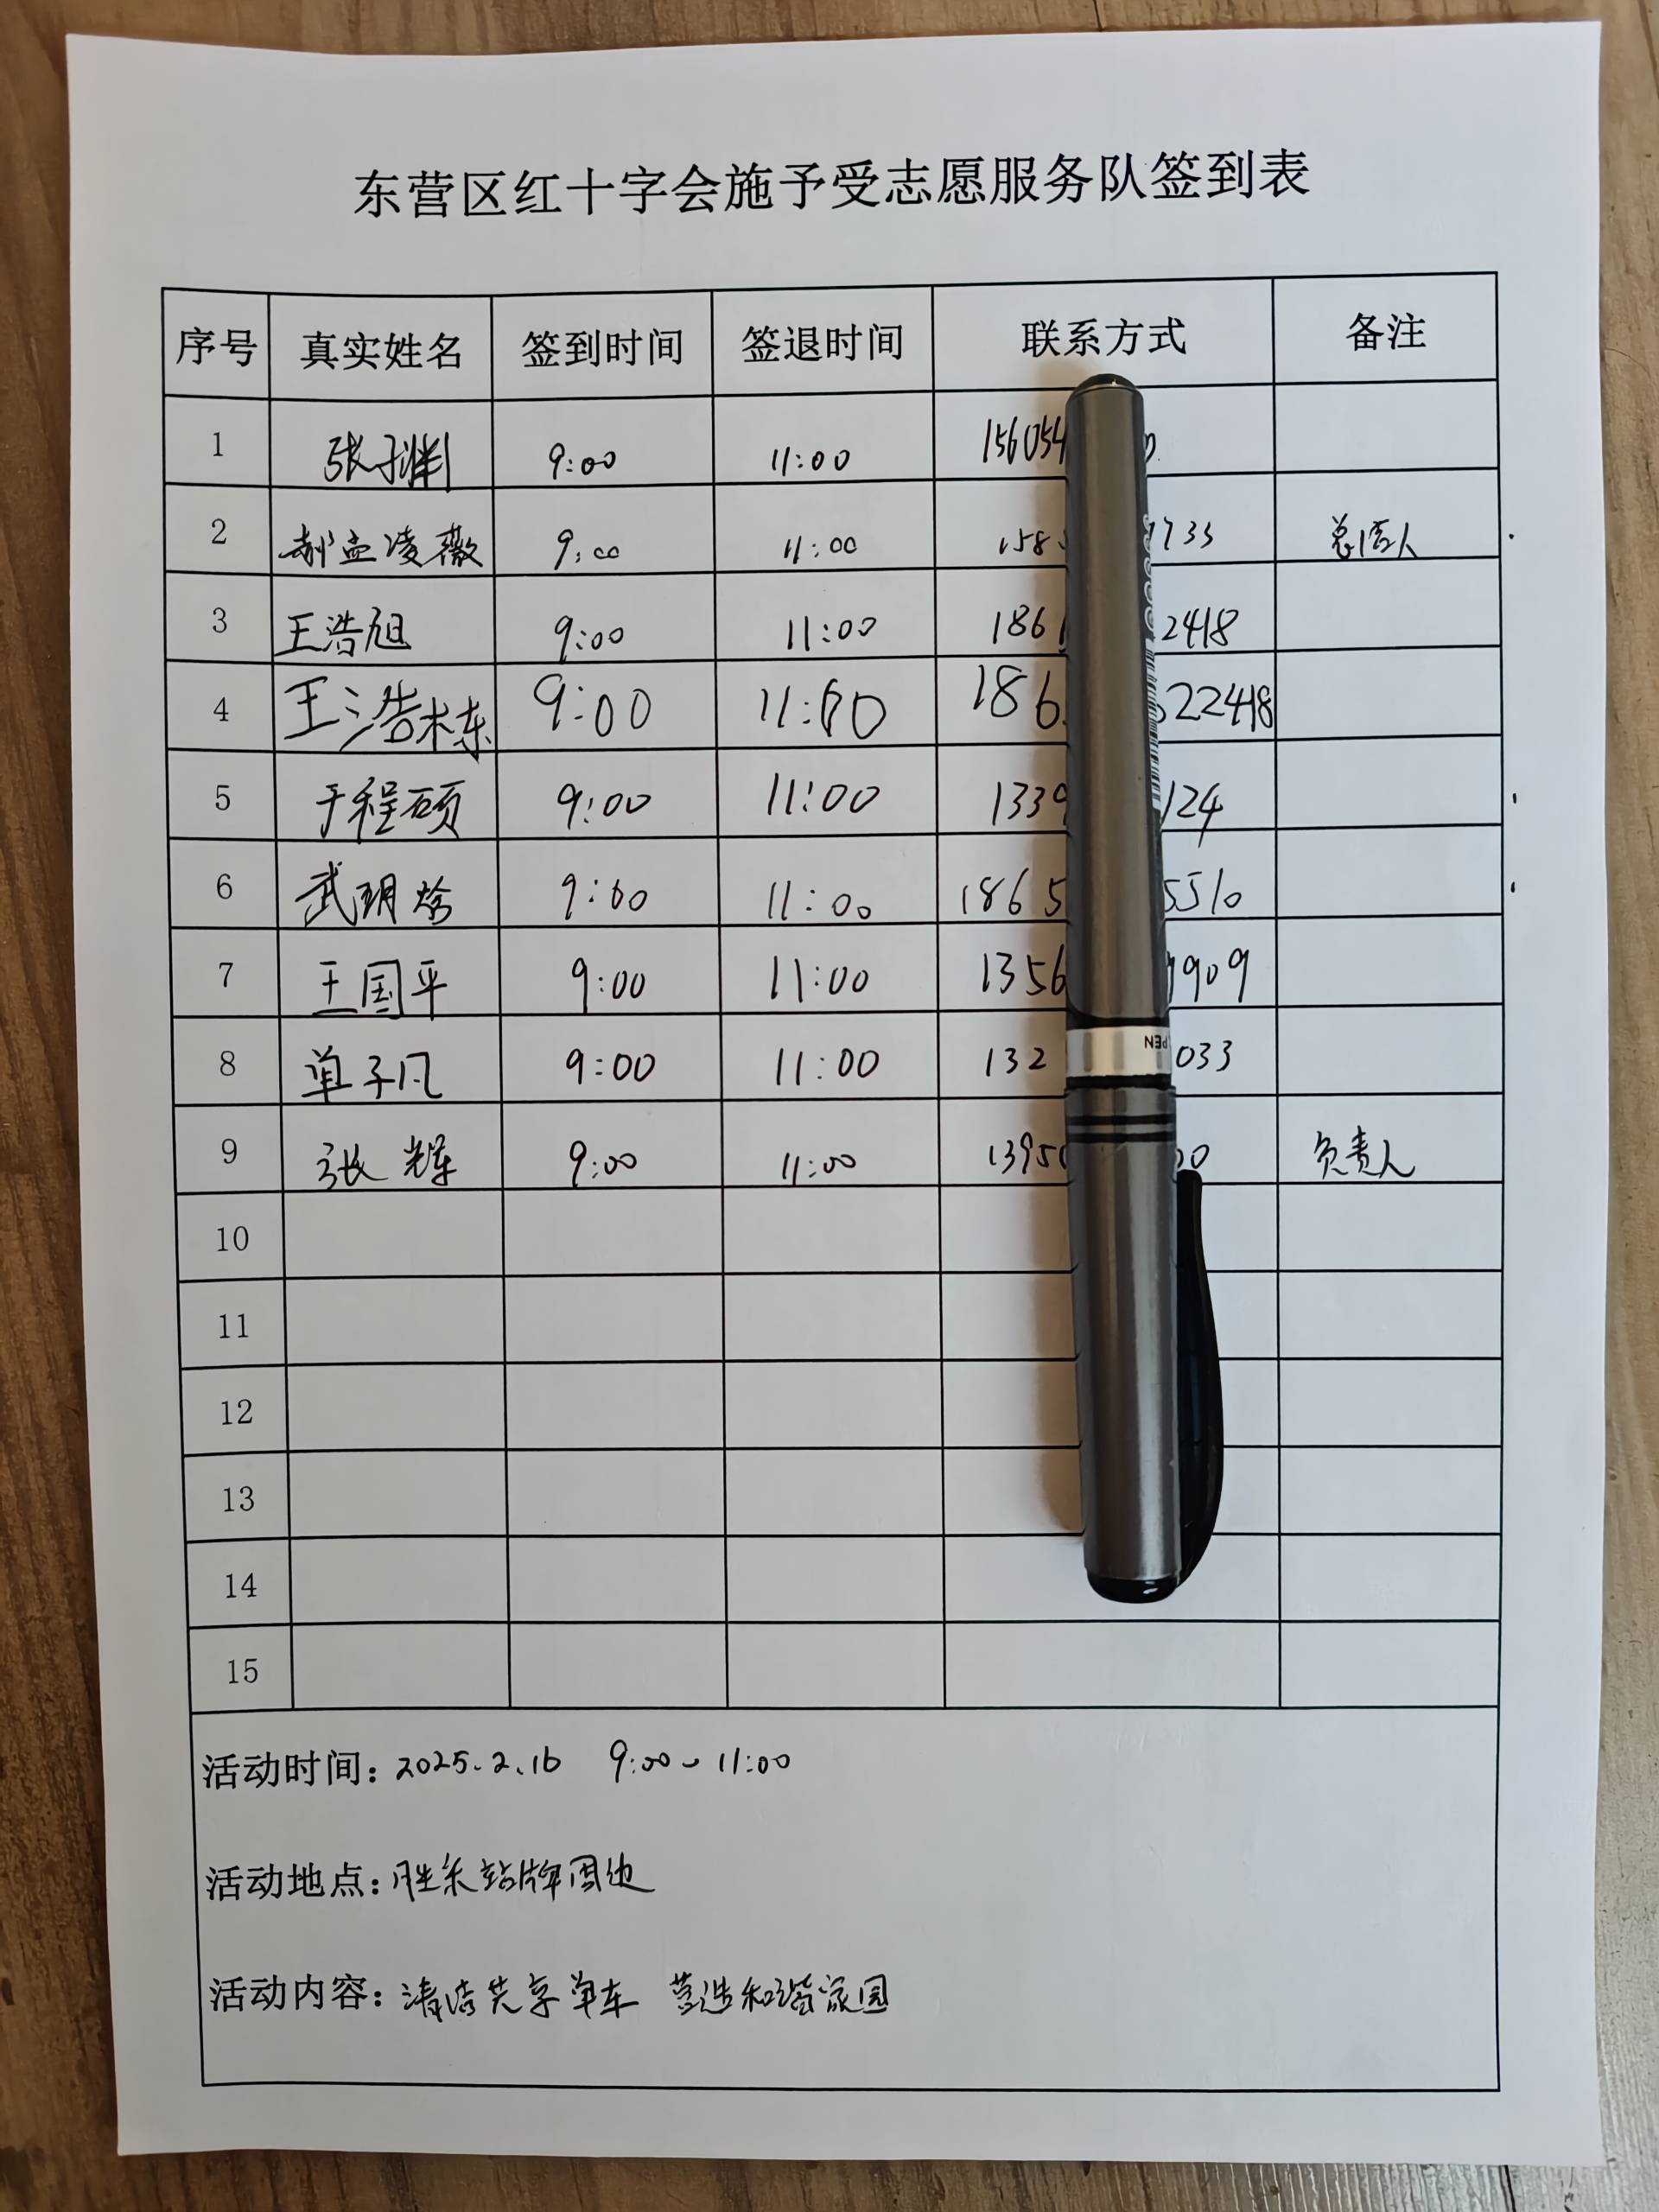 东营区红十字会施予受志愿服务队签到表
序号 真实姓名 签到时间 签退时间 联系方式 备注
1 张子渊 9:00 11:00 156054
2 郝孟凌薇 9:00 11:00 158 1733 总结人
3 王浩旭 9:00 11:00 186 2418
4 王浩栋 9:00 11:00 186 22418
5 于程硕 9:00 11:00 1339 124
6 武玥 9:00 11:00 1865 5510
7 王国平 9:00 11:00 1356 9909
8 单子凡 9:00 11:00 132 033
9 张辉 9:00 11:00 1395 00 负责人
10
11
12
13
14
15
活动时间: 2025.2.16 9:00~11:00
活动地点: 胜东站牌周边
活动内容: 清洁共享单车 营造和谐家园
PEN